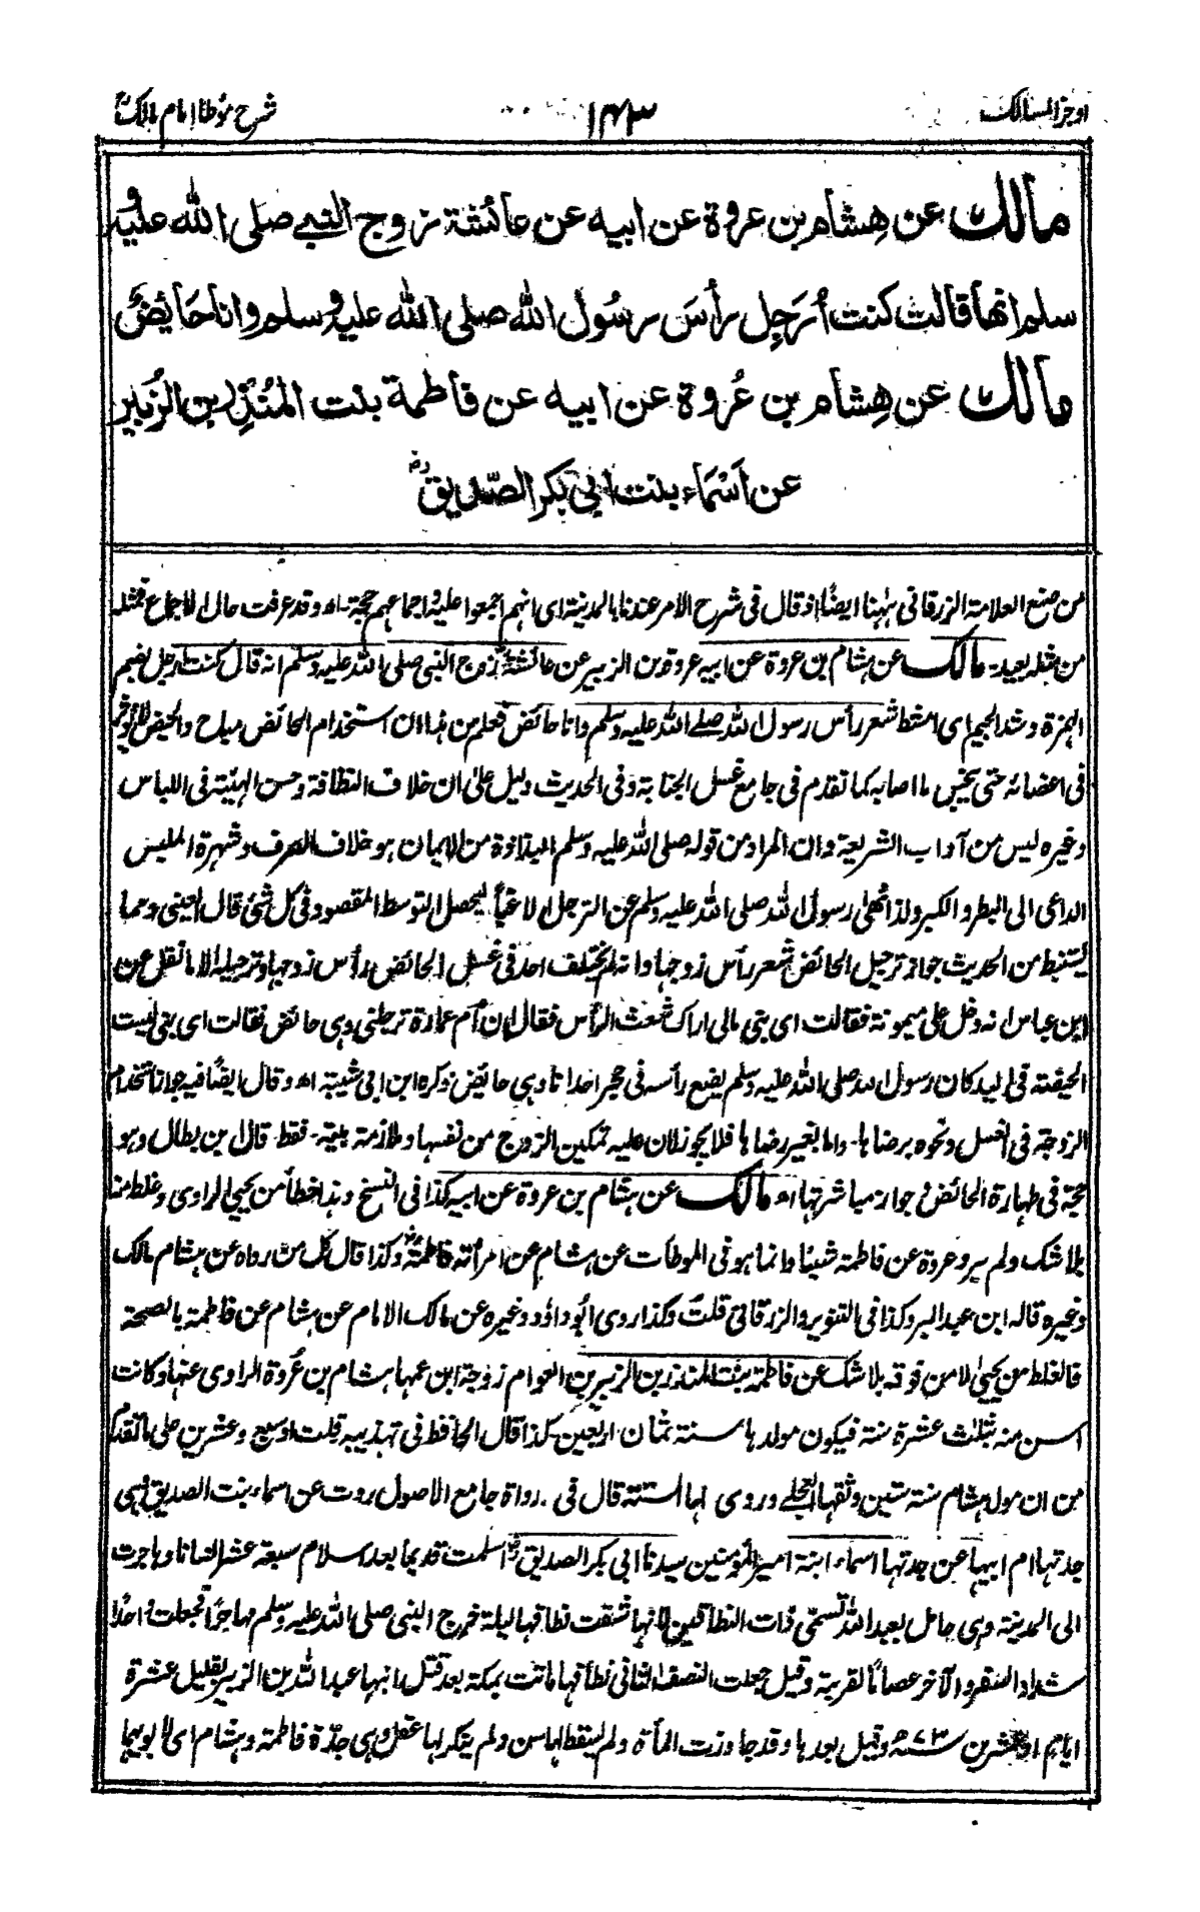 اوجز المسالك
١٤٣
شرح مؤطا امام مالكؒ
مالك عن هشام بن عروة عن ابيه عن عائشة زوج النبي صلى الله عليه و
سلم انها قالت كنت اُرَجِّل رأسَ رسُول الله صلى الله عليه وسلم وانا حَائِضٌ
مالك عن هِشام بن عُروة عن ابيه عن فاطمة بنت المُنْذِر بن الزُبير
عن اَسْمَاء بنت ابي بكر الصّديق رضـ
من صنع العلامة الزرقاني ههنا ايضًا اذ قال في شرح الامر عندنا بالمدينة اى انهم اجمعوا عليه واجماعهم حجة اه وقد عرفت حال الاجماع فمثله
من مثله بعيد۔ مالك عن هشام بن عروة عن ابيه عروة بن الزبير عن عائشة رضـ زوج النبي صلى الله عليه وسلم انه قال كنت ارجل بضم
الهمزة وشد الجيم اى امشط شعر رأس رسول الله صلے الله عليه وسلم وانا حائض فعلم من هذا ان استخدام الحائض مباح والحيض لا يؤثر
في اعضائه حتى يتنجس ما اصابه كما تقدم في جامع غسل الجنابة وفي الحديث دليل على ان خلاف النظافة وحسن الهيئة في اللباس
وغيره ليس من آداب الشريعة وان المراد من قوله صلى الله عليه وسلم البذاذة من الايمان هو خلاف السرف وشهرة الملبس
الداعى الى البطر والكبر ولذا نهى رسول الله صلى الله عليه وسلم عن الترجل الا غبًا ليحصل التوسط المقصود في كل شئ قال العينى ومما
يستنبط من الحديث جواز ترجيل الحائض شعر رأس زوجها وانه لم يختلف احد في غسل الحائض رأس زوجها وترجيله الا ما نقل عن
ابن عباس انه دخل على ميمونة فقالت اى بنى مالى اراك شعث الرأس فقال ان ام عمارة ترجلنى وهى حائض فقالت اى بنى ليست
الحيضة في اليد كان رسول الله صلى الله عليه وسلم يضع رأسه في حجر احدانا وهى حائض ذكره ابن ابى شيبة اه وقال ايضًا فيه جواز استخدام
الزوجة في الغسل ونحوه برضاها۔ واما بغير رضاها فلا يجوز لان عليه تمكين الزوج من نفسها وملازمة بيته۔ فقط۔ قال ابن بطال وهو
حجة في طهارة الحائض وجواز مباشرتها اه مالك عن هشام بن عروة عن ابيه كذا في النسخ وهذا خطأ من يحيى الراوى وغلط منه
بلا شك ولم يرو عروة عن فاطمة شيئًا وانما هو في الموطآت عن هشام عن امرأته فاطمة وكذا قال كل من رواه عن هشام مالك
وغيره قاله ابن عبد البر وكذا في التنوير والزرقاني قلت وكذا روى ابو داؤد وغيره عن مالك الامام عن هشام عن فاطمة بالصحة
فالغلط من يحيىٰ لا من فوقه بلا شك عن فاطمة بنت المنذر بن الزبير بن العوام زوجة ابن عمها هشام بن عروة الراوى عنها وكانت
اسن منه بثلاث عشرة سنة فيكون مولدها سنة ثمان اربعين كذا قال الحافظ في تهذيبه قلت او سبع وعشرين على ما تقدم
من ان مولد هشام سنة ستين وثقها العجلے وروى لها الستة قال في رواة جامع الاصول روت عن اسماء بنت الصديق وهى
جدتها ام ابيها عن جدتها اسماء ابنة امير المؤمنين سيدنا ابى بكر الصديق رضـ اسلمت قديمًا بعد اسلام سبعة عشر انسانا وهاجرت
الى المدينة وهى حامل بعبد الله تسمى ذات النطاقين لانها شقت نطاقها ليلة خرج النبي صلى الله عليه وسلم مهاجرًا فجعلت احدا
شدادا لسفره والآخر عصامًا لقربته وقيل جعلت النصف الثانى نطاقها ماتت بمكة بعد قتل ابنها عبد الله بن الزبير بقليل عشرة
ايام او عشرين سنة ٧٣ه وقيل بعدها وقد جاوزت المأة ولم يسقط لها سن ولم ينكر لها عقل وهى جدّة فاطمة وهشام اى لابويهما